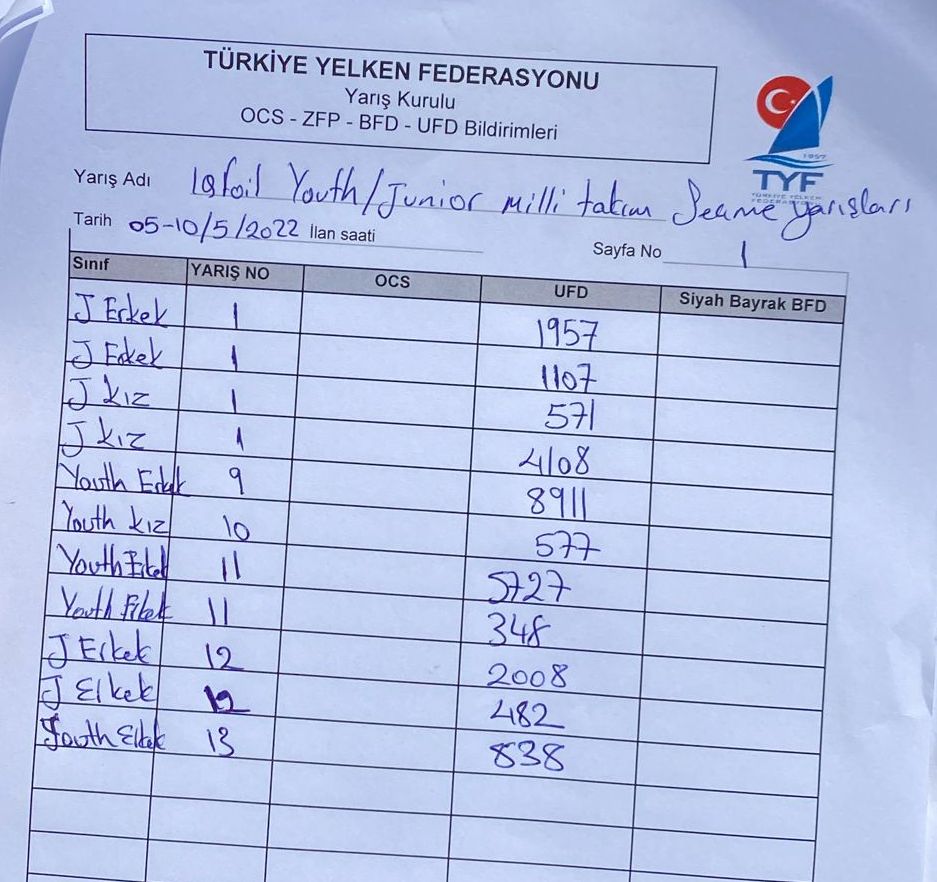 TÜRKİYE YELKEN FEDERASYONU
Yarış Kurulu
OCS - ZFP - BFD - UFD Bildirimleri
1957
TYF
TÜRKİYE YELKEN
FEDERASYONU
Yarış Adı Iqfoil Youth/Junior Milli takım Seçme yarışları
Tarih 05-10/5/2022 İlan saati
Sayfa No 1
Sınıf YARIŞ NO OCS UFD Siyah Bayrak BFD
J Erkek 1 1957
J Erkek 1 1107
J Kız 1 571
J Kız 1 4108
Youth Erkek 9 8911
Youth Kız 10 577
Youth Erkek 11 5727
Youth Erkek 11 348
J Erkek 12 2008
J Erkek 12 482
Youth Erkek 13 838